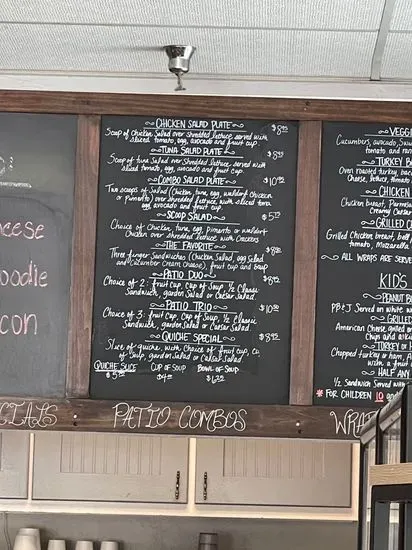 CHICKEN SALAD PLATE
Scoop of Chicken Salad over shredded lettuce served with
sliced tomato, egg, avocado and fruit cup.
TUNA SALAD PLATE
Scoop of tuna Salad over shredded lettuce served with
sliced tomato, egg, avocado and fruit cup.
COMBO SALAD PLATE
Two scoops of Salad (Chicken, tuna, egg, waldorf chicken
or Pimento) over shredded lettuce with sliced tom.
egg, avocado and fruit cup.
SCOOP SALAD
Choice of Chicken, tuna, egg, Pimento or waldorf
Chicken over shredded lettuce with Crackers
THE FAVORITE
Three finger Sandwiches (Chicken Salad, egg Salad
and Cucumber Cream cheese), fruit cup and Soup
PATIO DUO
Choice of 2: fruit cup, Cup of Soup, ½ Classic
Sandwich, garden Salad or Caesar Salad.
PATIO TRIO
Choice of 3: fruit cup, Cup of Soup, ½ Classic
Sandwich, garden Salad or Caesar Salad.
QUICHE SPECIAL
Slice of quiche, with choice of fruit cup, cu
of Soup, garden Salad or Caesar Salad
QUICHE SLICE CUP OF SOUP BOWL OF SOUP
PATIO COMBOS
eese
oodie
con
CIALS
VEGG
Cucumbers, avocado, Sw
tomato and ran
TURKEY B
Oven roasted turkey, bac
cheese, lettuce, tomato
CHICKEN
Chicken breast, Parmesa
Creamy Caesar
GRILLED C
Grilled Chicken breast, beef
tomato, mozzarella
ALL WRAPS ARE SERVE
KID'S
PEANUT B
PB+J Served on white w
GRILLED
American Cheese grilled on
Chips and a ki
TURKEY or H
Chopped turkey or ham, A
with a fruit
HALF ANY
½ Sandwich Served with
* FOR CHILDREN 10 and
WRAP